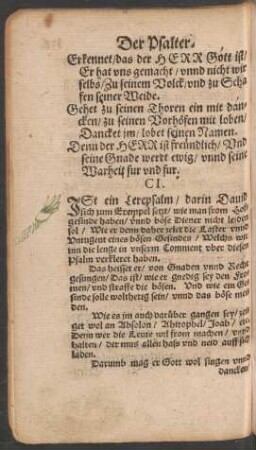 Der Psalter.
Erkennet/das der HERR Gott ist/
Er hat vns gemacht/vnnd nicht wir
selbs/Zu seinem Volck/vnd zu Scha
fen seiner Weide.
Gehet zu seinen Thoren ein mit dan
cken/zu seinen Vorhöfen mit loben/
Dancket im/lobet seinen Namen.
Denn der HERR ist freündlich/Vnd
seine Gnade werdt ewig/vnnd seine
Warheit fur vnd fur.
CI.
ISt ein Lerepsalm/darin Dauid
sich zum Exempel setzt/wie man from
gesinde haben/vnnd böse Diener nicht leiden
sol/Wie er denn daher zelet die Laster vnnd
Vntugent eines bösen Gesinden/Welchs wir
inn die lenge in vnserm Comment vber diesen
Psalm verkleret haben.
Das heisset er/von Gnaden vnnd Recht
gesungen/Das ist/wie er gnedig sey den Fro
men/vnd straffe die bösen. Vnd wie ein Ge
sinde solle wolthetig sein/vnnd das böse mei
den.
Wie es im auch darüber gangen sey/zei
get wol an Absolon/Ahitophel/Joab/
Denn wer die Leute wil from machen/vnnd
halten/der mus allen hass vnd neid auff sich
laden.
Darumb mag er Gott wol singen vnnd
dancken/